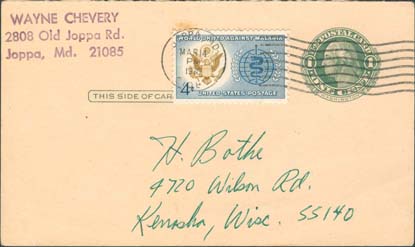 WAYNE CHEVERY
2808 Old Joppa Rd.
Joppa, Md. 21085
WORLD UNITED AGAINST MALARIA
4¢
UNITED STATES POSTAGE
U.S. POSTAGE
1 CENT 1
THIS SIDE OF CAR
H. Bothe
4720 Wilson Rd.
Kenosha, Wisc. 55140